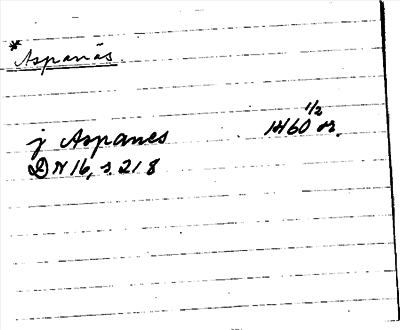 * Aspanäs.
j Aspanes 1460 1/2 or.
D N 16, s. 218